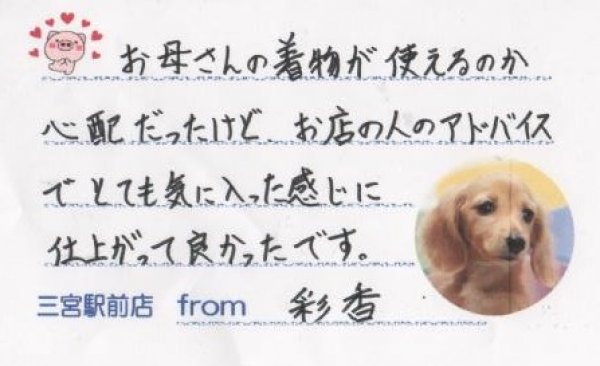 お母さんの着物が使えるのか
心配だったけど、お店の人のアドバイス
でとても気に入った感じに
仕上がって良かったです。
三宮駅前店 from 彩香